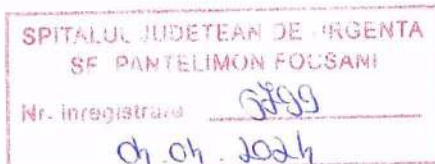 SPITALUL JUDETEAN DE URGENTA
SF. PANTELIMON FOCSANI
Nr. inregistrare 6799
04.04.2024